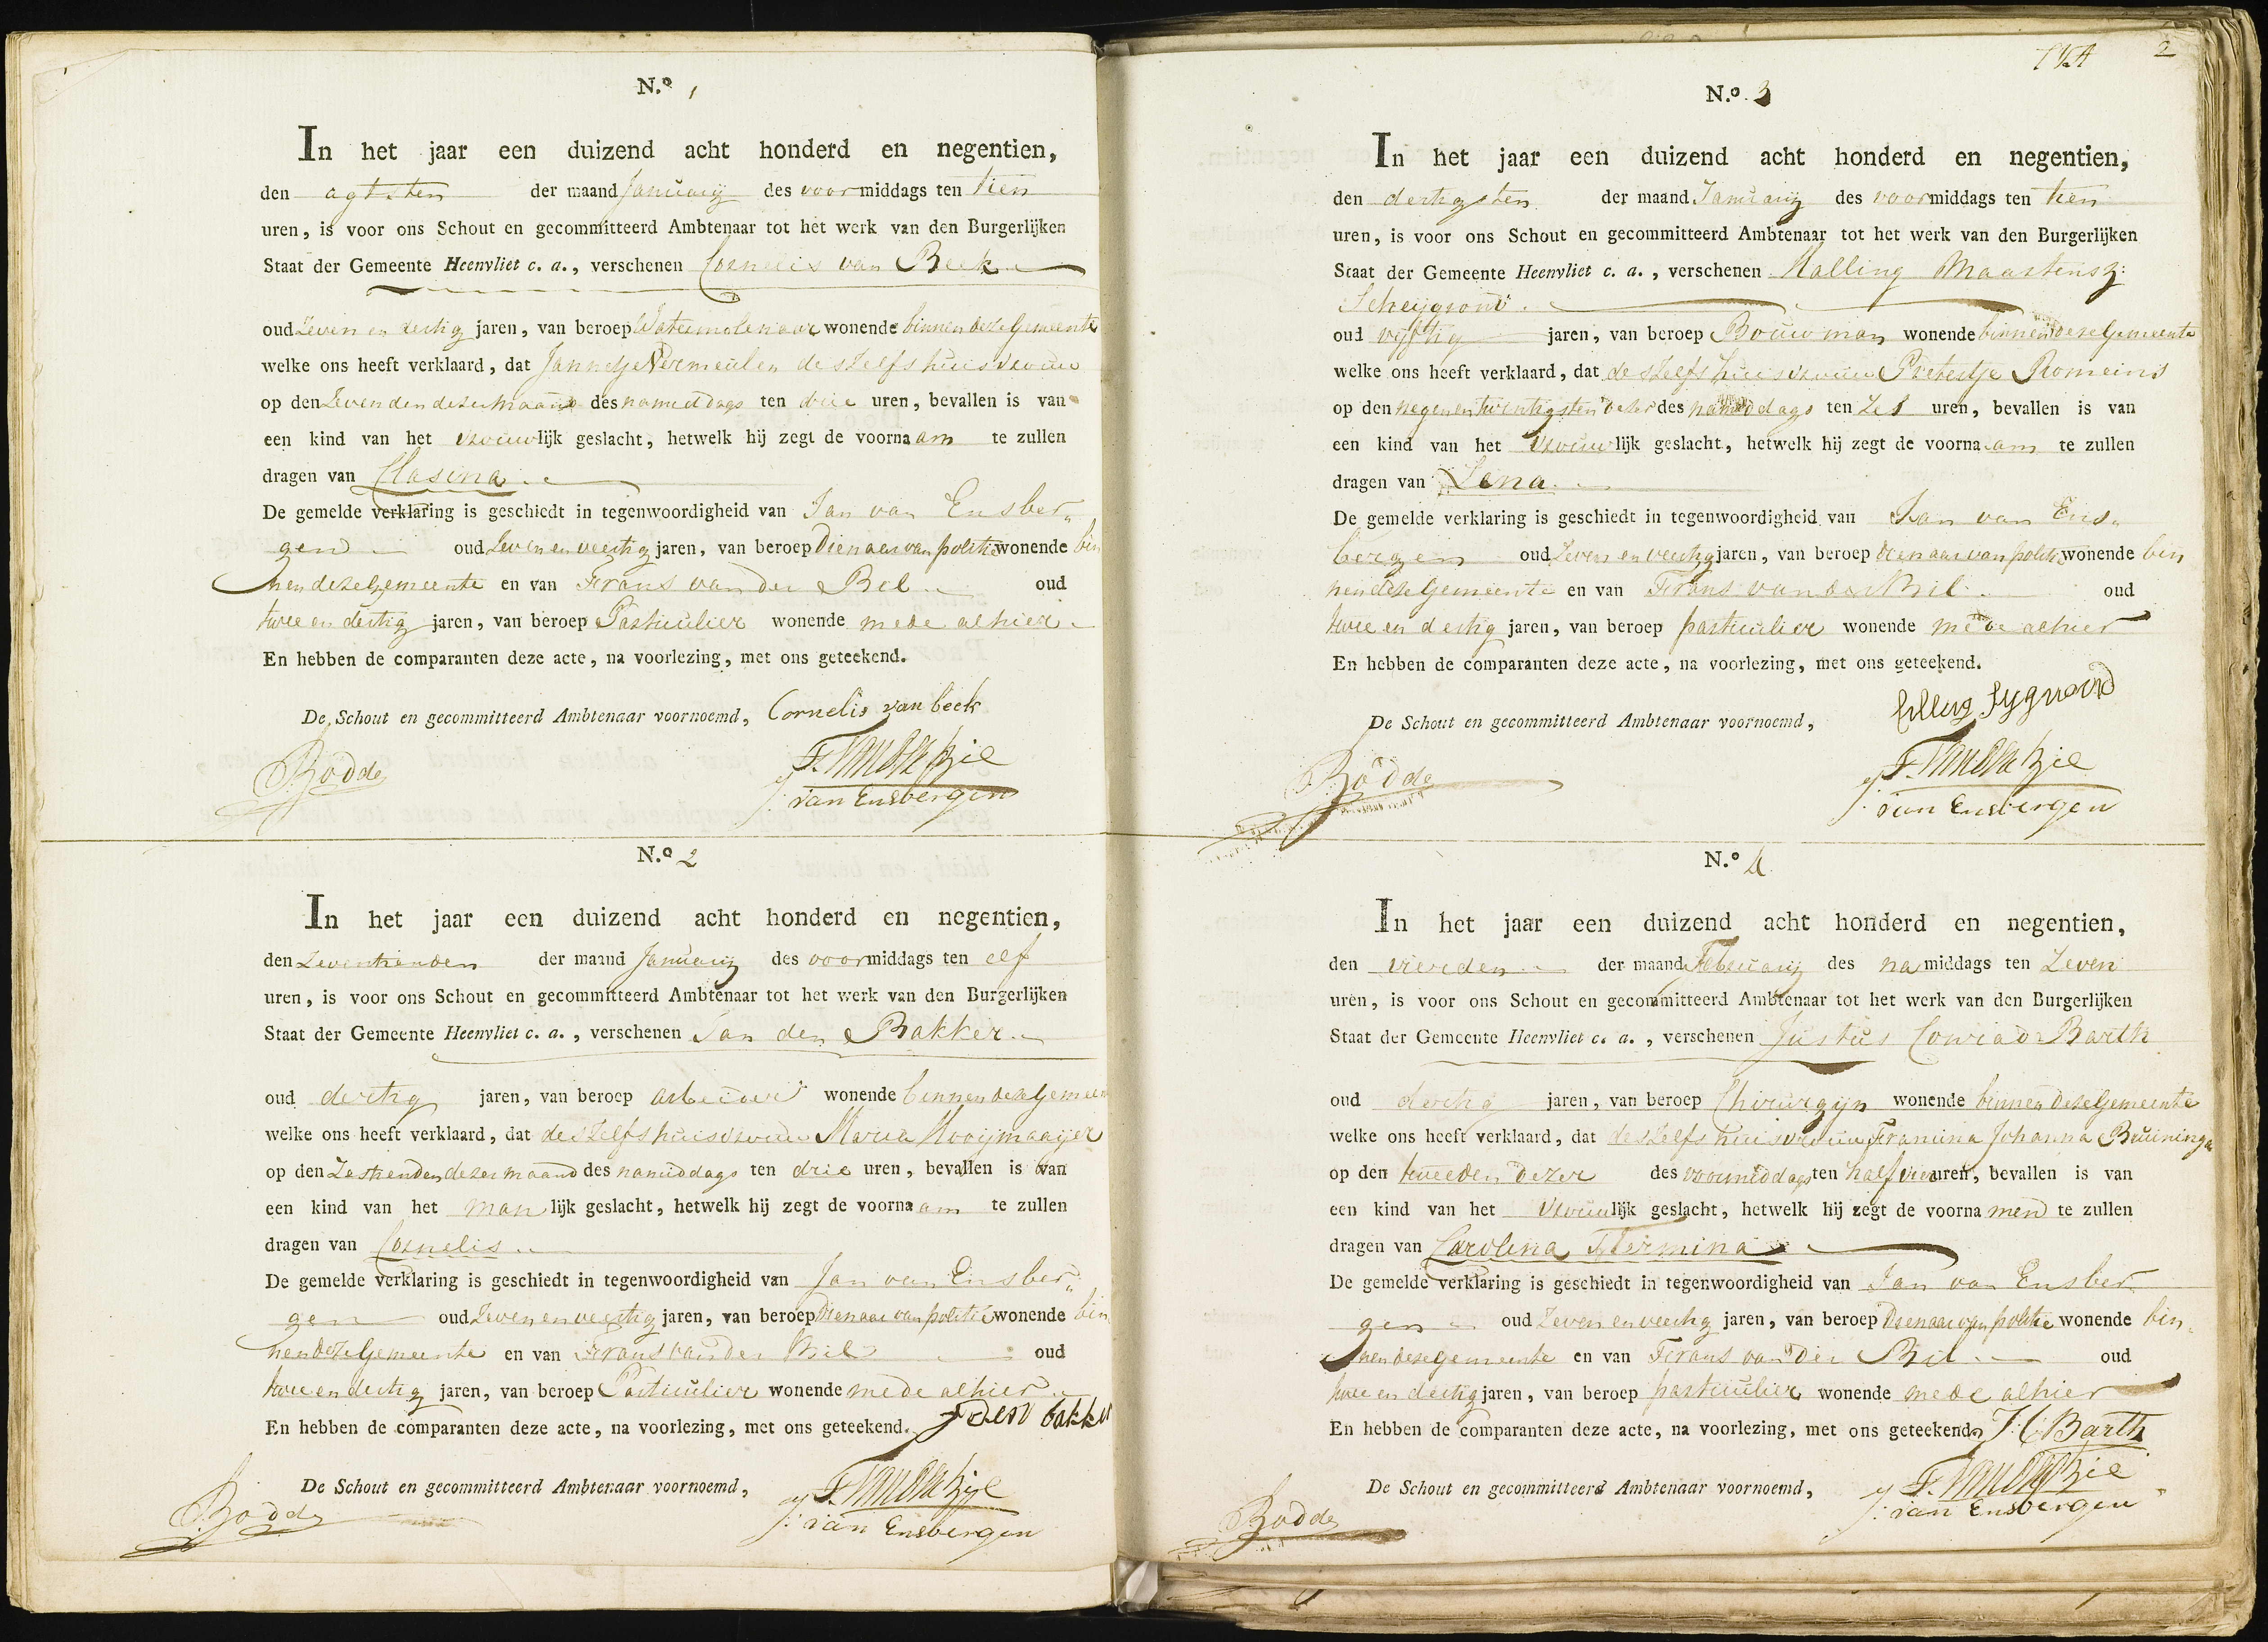 N.º 1
In het jaar een duizend acht honderd en negentien,
den agtsten der maand Januarij des voormiddags ten tien
uren, is voor ons Schout en gecommitteerd Ambtenaar tot het werk van den Burgerlijken
Staat der Gemeente Heenvliet c. a., verschenen Cornelis van Beek
oud Zeven en dertig jaren, van beroep Watermolenaar wonende binnen deze Gemeente
welke ons heeft verklaard, dat Jannetje Vermeulen deszelfs huisvrouw
op den Zevenden dezer maand des namiddags ten drie uren, bevallen is van
een kind van het vrouwlijk geslacht, hetwelk hij zegt de voornaam te zullen
dragen van Clasina
De gemelde verklaring is geschiedt in tegenwoordigheid van Jan van Ensber„
gen oud Zeven en veertig jaren, van beroep Dienaar van politie wonende bin
nen deze Gemeente en van Frans van der Bil oud
twee en dertig jaren, van beroep Particulier wonende mede alhier
En hebben de comparanten deze acte, na voorlezing, met ons geteekend.
De Schout en gecommitteerd Ambtenaar voornoemd, Cornelis van beek
Bodde F. van der bil
J. van Ensbergen
N.º 2
In het jaar een duizend acht honderd en negentien,
den Zeventienden der maand Januarij des voormiddags ten elf
uren, is voor ons Schout en gecommitteerd Ambtenaar tot het werk van den Burgerlijken
Staat der Gemeente Heenvliet c. a., verschenen Jan den Bakker
oud dertig jaren, van beroep arbeider wonende binnen deze Gemeen
welke ons heeft verklaard, dat deszelfs huisvrouw Maria Kooijmaaijer
op den Zestienden dezer maand des namiddags ten drie uren, bevallen is van
een kind van het manlijk geslacht, hetwelk hij zegt de voornaam te zullen
dragen van Cornelis
De gemelde verklaring is geschiedt in tegenwoordigheid van Jan van Ensber„
gen oud Zeven en veertig jaren, van beroep Dienaar van politie wonende bin
nen deze Gemeente en van Frans van der Bil oud
twee en dertig jaren, van beroep Particulier wonende mede alhier
En hebben de comparanten deze acte, na voorlezing, met ons geteekend. J den bakker
De Schout en gecommitteerd Ambtenaar voornoemd, F. van der bil
Bodde J. van Ensbergen
2
N.º 3
In het jaar een duizend acht honderd en negentien,
den dertigsten der maand Januarij des voormiddags ten tien
uren, is voor ons Schout en gecommitteerd Ambtenaar tot het werk van den Burgerlijken
Staat der Gemeente Heenvliet c. a., verschenen Halling Maartensz:
Scheijgrond
oud vijftig jaren, van beroep Bouwman wonende binnen deze Gemeente
welke ons heeft verklaard, dat deszelfs huisvrouw Pietertje Romeins
op den negenentwintigsten dezer des namiddags ten Zes uren, bevallen is van
een kind van het vrouwlijk geslacht, hetwelk hij zegt de voornaam te zullen
dragen van Lena
De gemelde verklaring is geschiedt in tegenwoordigheid van Jan van Ens„
bergen oud Zeven en veertig jaren, van beroep Dienaar van politie wonende bin
nen deze Gemeente en van Frans van der Bil oud
twee en dertig jaren, van beroep particulier wonende mede alhier
En hebben de comparanten deze acte, na voorlezing, met ons geteekend.
De Schout en gecommitteerd Ambtenaar voornoemd,
Bodde F. van der bil
J. van Ensbergen
N.º 4
In het jaar een duizend acht honderd en negentien,
den vierden der maand Februarij des namiddags ten Zeven
uren, is voor ons Schout en gecommitteerd Ambtenaar tot het werk van den Burgerlijken
Staat der Gemeente Heenvliet c. a., verschenen Justus Conrad Barth
oud dertig jaren, van beroep Chirurgijn wonende binnen deze Gemeente
welke ons heeft verklaard, dat deszelfs huisvrouw Framina Johanna Bruininga
op den tweeden dezer des voormiddags ten half vier uren, bevallen is van
een kind van het vrouwlijk geslacht, hetwelk hij zegt de voornamen te zullen
dragen van Carolina Fermina
De gemelde verklaring is geschiedt in tegenwoordigheid van Jan van Ensber
gen oud Zeven en veertig jaren, van beroep Dienaar van politie wonende bin„
nen deze gemeente en van Frans van der Bil oud
twee en dertig jaren, van beroep particulier wonende mede alhier
En hebben de comparanten deze acte, na voorlezing, met ons geteekend. J. C Barth
De Schout en gecommitteerd Ambtenaar voornoemd, F. van der bil
Bodde J. van Ensbergen